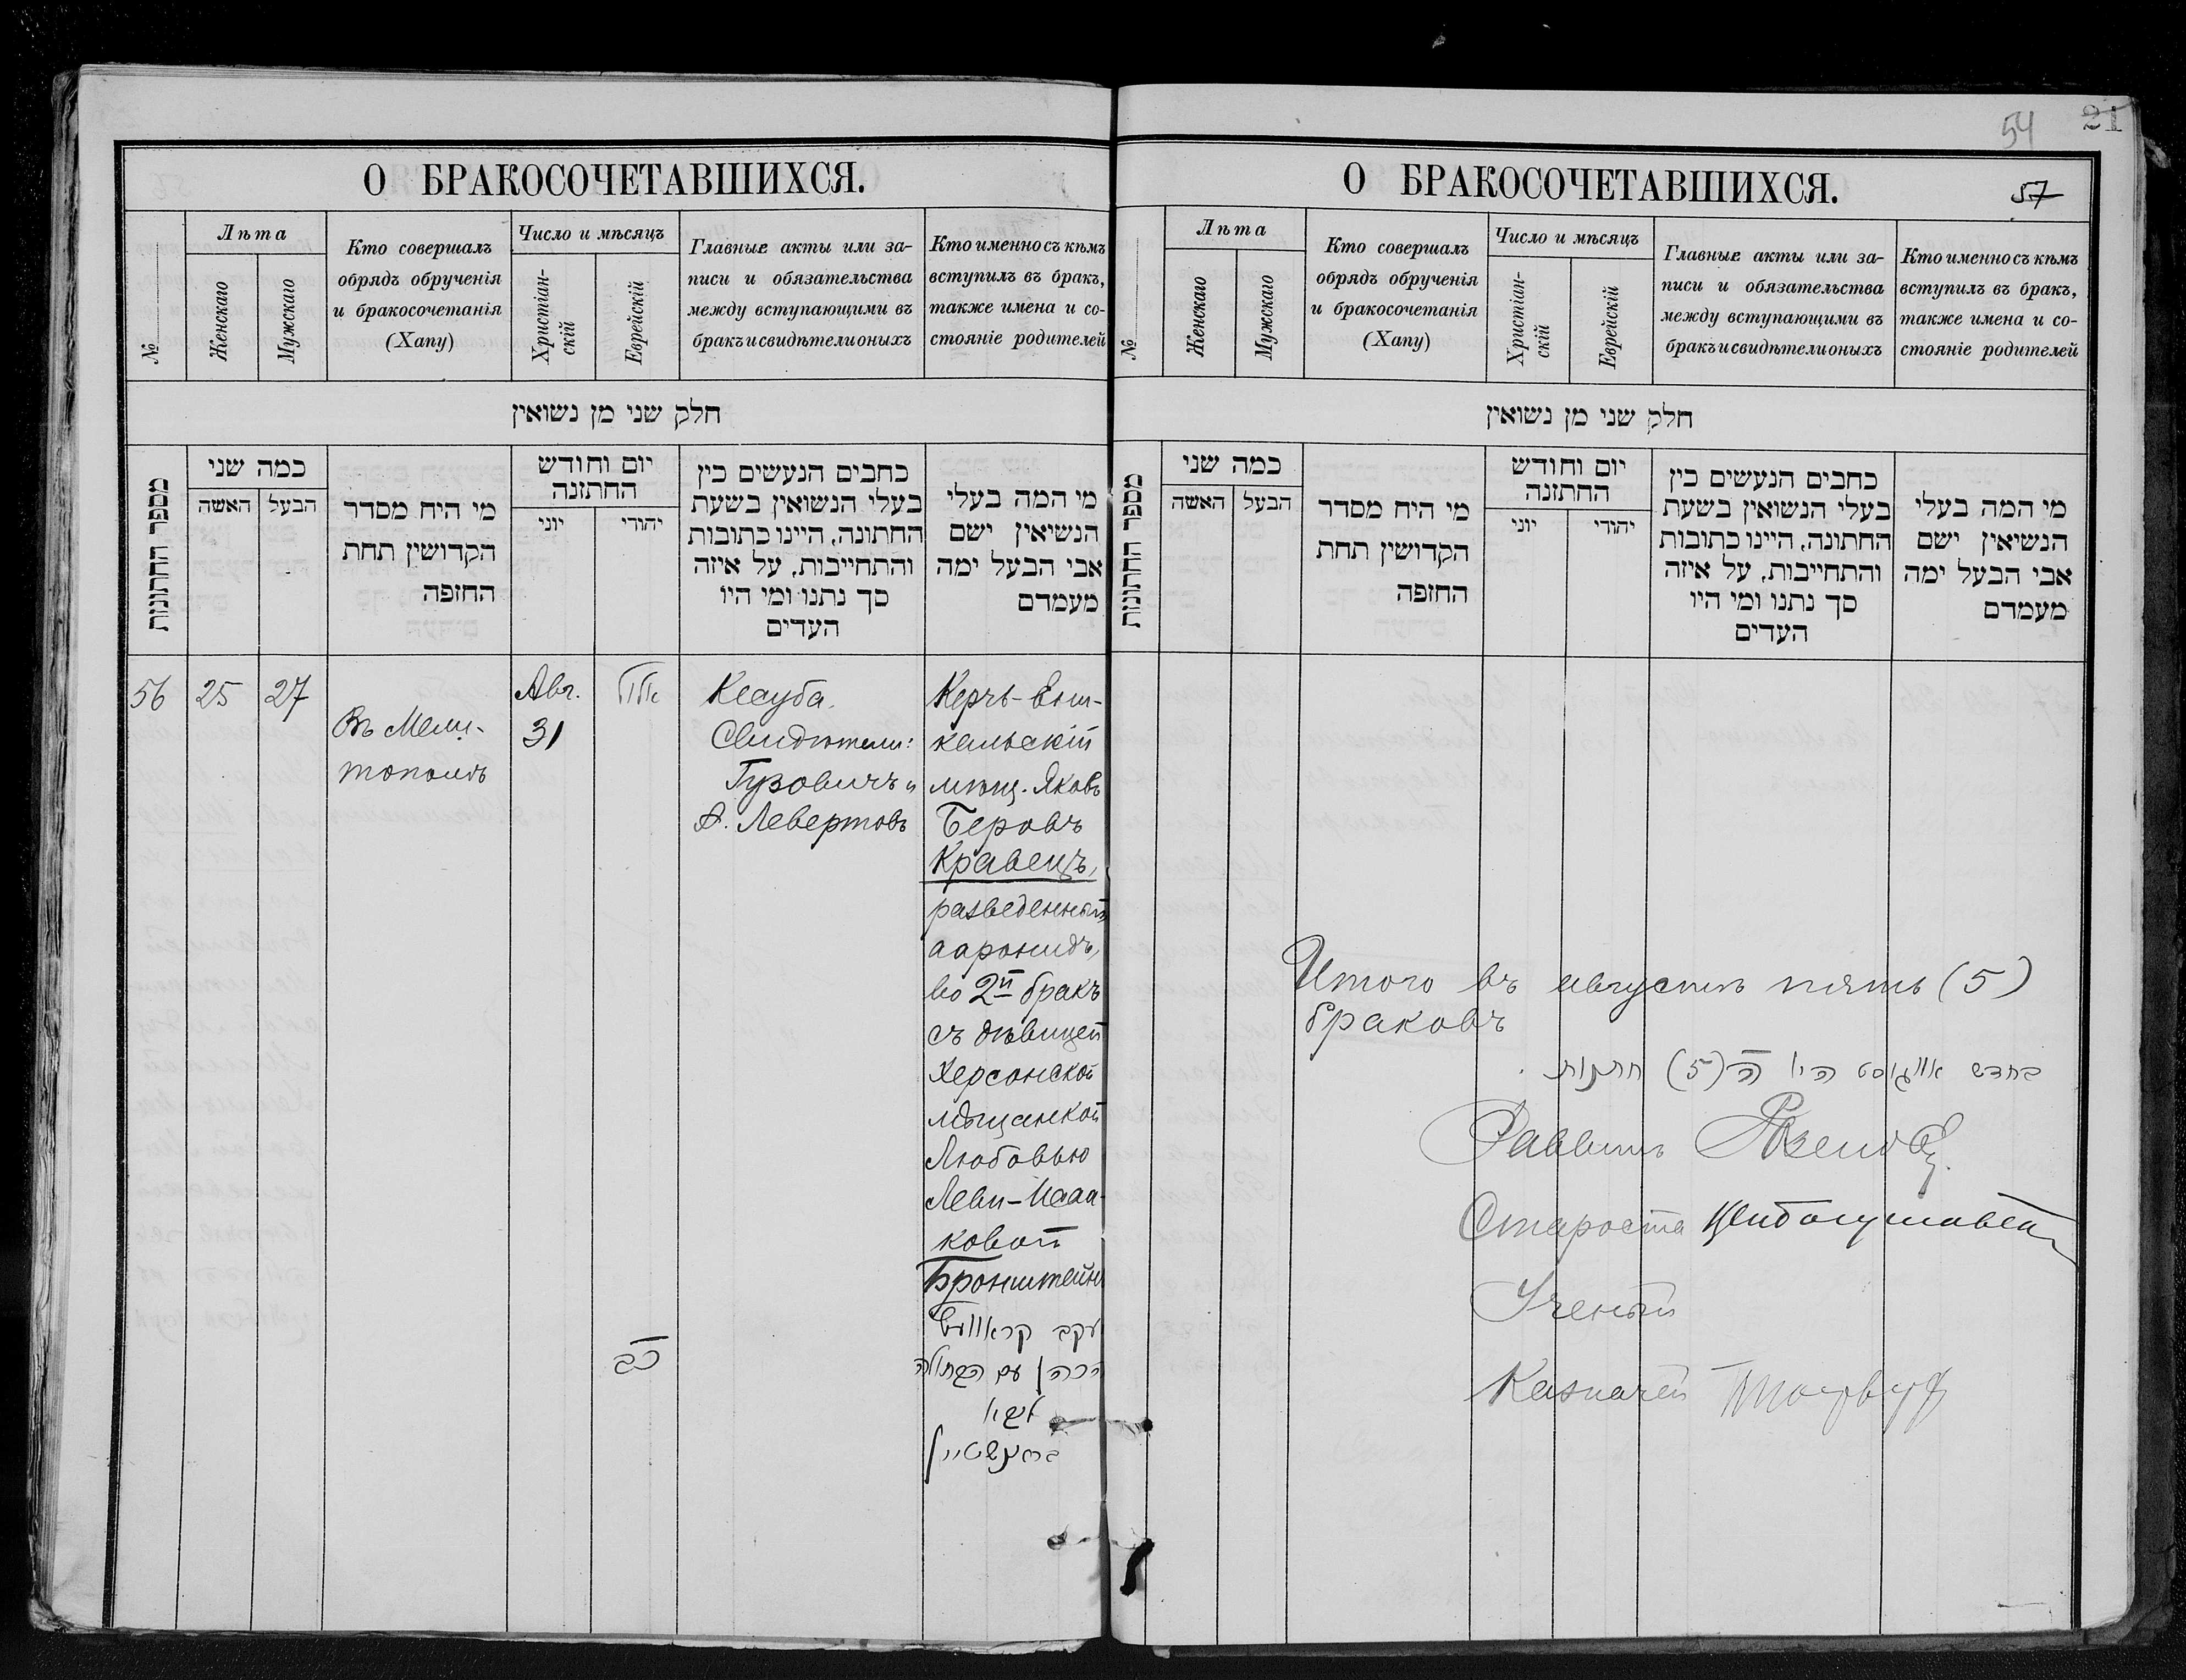 О БРАКОСОЧЕТАВШИХСЯ.
№
Лѣта
Женскаго
Мужскаго
Кто совершалъ
обрядъ обрученія
и бракосочетанія
(Хапу)
Число и мѣсяцъ
Христіан-
скій
Еврейскій
Главные акты или за-
писи и обязательства
между вступающими въ
бракъ и свидѣтели оныхъ
Кто именно съ кѣмъ
вступилъ въ бракъ,
также имена и со-
стояніе родителей
חלק שני מן נשואין
מספר החתונות
כמה שני
האשה
הבעל
מי היח מסדר
הקדושין תחת
החזפה
יום וחודש
החתזנה
יוני
יהודי
כחבים הנעשים כין
בעלי הנשואין בשעת
החתונה, היינו כתובות
והתחייבות, על איזה
סך נתנו ומי היו
העדים
מי המה בעלי
הנשיאין ישם
אבי הבעל ימה
מעמדם
56
25
27
Въ Мели-
тополѣ
Авг.
31
אלול
כב
Кесуба.
Свидѣтели:
Гузовичъ и
Левертовъ
Керчь-Ени-
кальскій
мѣщ. Яковъ
Беровъ
Кравецъ,
разведенный
ааронидъ,
во 2й бракъ
съ дѣвицей
Херсонской
мѣщанкой
Любовью
Леви-Исаа-
ковой
Бронштейнъ
יעקב קראוועץ
הכהן עם הבתולה
ליבא
בראנשטיין
54
21
О БРАКОСОЧЕТАВШИХСЯ.
57
№
Лѣта
Женскаго
Мужскаго
Кто совершалъ
обрядъ обрученія
и бракосочетанія
(Хапу)
Число и мѣсяцъ
Христіан-
скій
Еврейскій
Главные акты или за-
писи и обязательства
между вступающими въ
бракъ и свидѣтели оныхъ
Кто именно съ кѣмъ
вступилъ въ бракъ,
также имена и со-
стояніе родителей
חלק שני מן נשואין
מספר החתונות
כמה שני
האשה
הבעל
מי היח מסדר
הקדושין תחת
החזפה
יום וחודש
החתזנה
יוני
יהודי
כחבים הנעשים כין
בעלי הנשואין בשעת
החתונה, היינו כתובות
והתחייבות, על איזה
סך נתנו ומי היו
העדים
מי המה בעלי
הנשיאין ישם
אבי הבעל ימה
מעמדם
Итого въ августѣ пять (5)
браковъ
בחדש אויגוסט היו ה (5) חתונות
Раввинъ
Староста
Ученый
Казначей